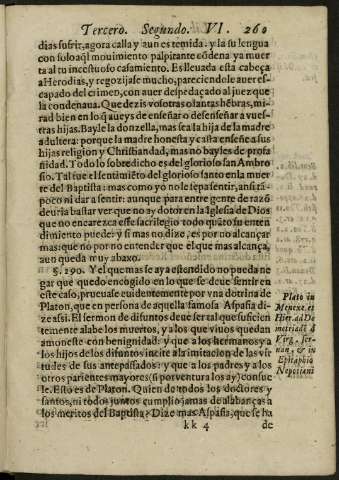 Tercero. Segundo. VI. 260
dias sufrir, agora calla y aun es temida. y la su lengua
con solo aql mouimiento palpitante cõdena ya muer
ta al tu incestuoso casamiento. Es lleuada esta cabeça
a Herodias, y regozijase mucho, pareciendole auer es-
capado del crimen, con auer despedaçado al juez que
la condenaua. Que dezis vosotras o santas hẽbras, mi-
rad bien en lo q̃ aueys de enseñar o desenseñar a vues-
tras hijas. Bayle la donzella, mas sea la hija de la madre
adultera: porque la madre honesta y casta enseñe a sus
hijas religion y Christiandad, mas no bayles de profa
nidad. Todo lo sobredicho es del glorioso san Ambro
sio. Tal fue el sentimiẽto del glorioso santo en la muer
te del Baptista: mas como yo no le sepa sentir, ansi tã-
poco ni dar a sentir: aunque para entre gente de razõ
deuria bastar ver que no ay dotor en la Iglesia de Dios
que no encarezca este sacrilegio todo quãto su enten
dimiento puede: y si mas no dize, es por no alcançar
mas: que no por no entender que el que mas alcança,
aun queda muy abaxo.
§. 290. Y el que mas se aya estendido no pueda ne
gar que quedo encogido en lo que se deue sentir en
este caso, prueuase euidentemente por vna dotrina de
Platon, que en persona de aquella famosa Aspasia di-
ze assi. El sermon de difuntos deue ser tal que suficien
temente alabe los muertos, y a los que viuos quedan
amoneste con benignidad: y que a los hermanos y a
los hijos de los difuntos incite a la imitacion de las vir
tudes de sus antepassados: y que a los padres y a los
otros parientes mayores (si por ventura los ay) consue
le. Esto es de Platon. Quien de todos los doctores y
santos, ni todos juntos cumplio jamas de alabanças a
los meritos del Baptista? Dize mas Aspasia, que se ha
kk 4 de
Plato in
Menexe. et
Hier. ad De
metriadẽ &
Virg. ser-
uan. & in
Epitaphio
Nepotiani